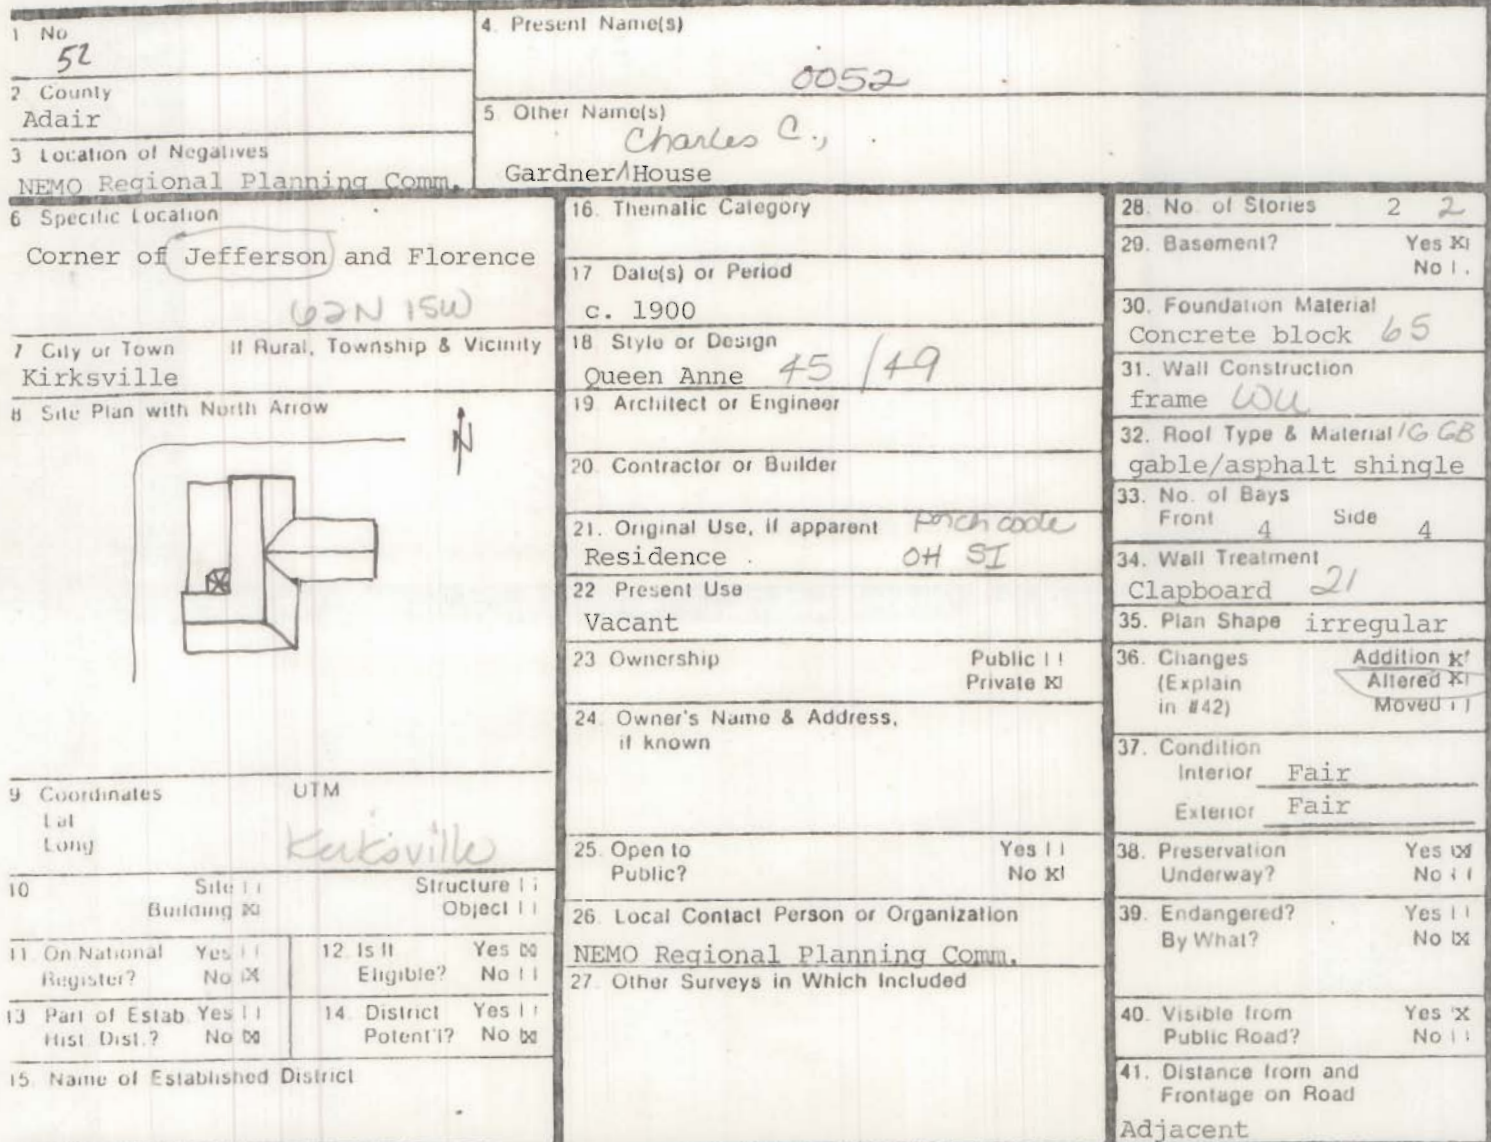 1 No.
52
2 County
Adair
3 Location of Negatives
NEMO Regional Planning Comm.
4. Present Name(s)
0052
5. Other Name(s)
Charles C.,
Gardner/\House
6 Specific Location
Corner of Jefferson and Florence
62N 15W
7 City or Town If Rural, Township & Vicinity
Kirksville
8 Site Plan with North Arrow
N
9 Coordinates UTM
Lat
Long
Kirksville
10 Site Structure
Building [X] Object
11. On National Register? Yes
No [X]
12. Is It Eligible? Yes [X]
No
13 Part of Estab. Hist. Dist.? Yes
No [X]
14. District Potent'l? Yes
No [X]
15. Name of Established District
16. Thematic Category
17 Date(s) or Period
c. 1900
18. Style or Design
Queen Anne 45 / 49
19. Architect or Engineer
20. Contractor or Builder
21. Original Use, if apparent Porch code
Residence OH SI
22 Present Use
Vacant
23 Ownership Public
Private [X]
24. Owner's Name & Address,
if known
25. Open to Yes
Public? No [X]
26. Local Contact Person or Organization
NEMO Regional Planning Comm.
27. Other Surveys in Which Included
28. No. of Stories 2 2
29. Basement? Yes [X]
No
30. Foundation Material
Concrete block 65
31. Wall Construction
frame WU
32. Roof Type & Material IG GB
gable/asphalt shingle
33. No. of Bays
Front 4 Side 4
34. Wall Treatment
Clapboard 21
35. Plan Shape irregular
36. Changes Addition [X]
(Explain Altered [X]
in #42) Moved
37. Condition
Interior Fair
Exterior Fair
38. Preservation Yes [X]
Underway? No
39. Endangered? Yes
By What? No [X]
40. Visible from Yes [X]
Public Road? No
41. Distance from and
Frontage on Road
Adjacent